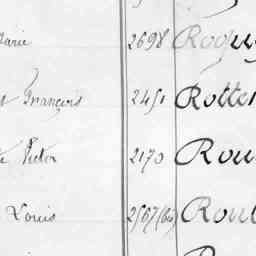 Marie 2698 Roqu
François 2451 Rotten
Victor 2170 Rou
Louis 2567(60) Rout